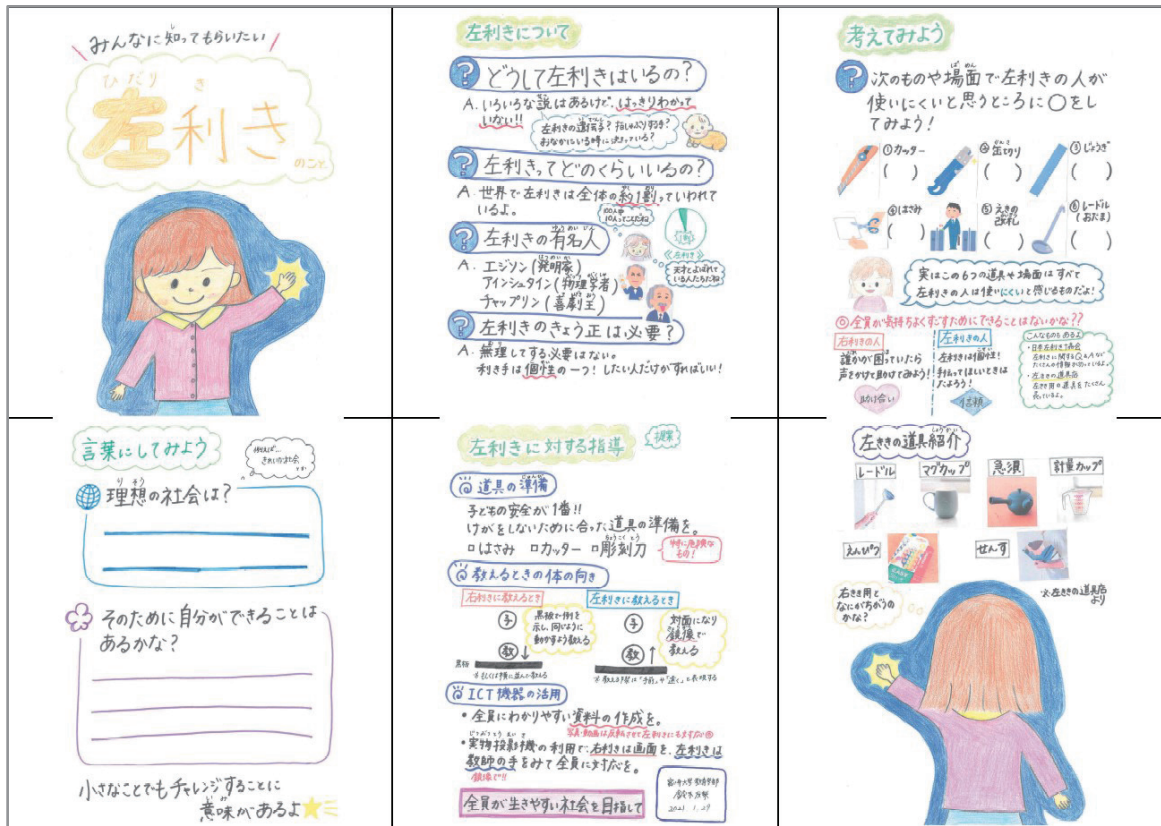 みんなに知ってもらいたい
ひだり き
左利き
のこと
左利きについて
? どうして左利きはいるの?
A. いろいろな説はあるけど、はっきりわかって
いない!!
左利きの遺伝子? 指しゃぶりする手?
おなかにいる時に決まっている?
? 左利きってどのくらいいるの?
A. 世界で左利きは全体の約1割っていわれて
いるよ。
100人中
10人ってことだね
1割
《左利き》
? 左利きの有名人
A. エジソン(発明家)
アインシュタイン(物理学者)
チャップリン(喜劇王)
天才とよばれて
いる人たちだね
? 左利きのきょう正は必要?
A. 無理してする必要はない。
利き手は個性の一つ! したい人だけがすればいい!
考えてみよう
? 次のものや場面で左利きの人が
使いにくいと思うところに○をし
てみよう!
①カッター
( )
②缶切り
( )
③じょうぎ
( )
④はさみ
( )
⑤えきの
改札
( )
⑥レードル
(おたま)
( )
実はこの6つの道具や場面はすべて
左利きの人は使いにくいと感じるものだよ!
◎全員が気持ちよくすごすためにできることはないかな??
右利きの人
誰かが困っていたら
声をかけて助けてみよう!
助け合い
左利きの人
左利きは個性!
手伝ってほしいときは
たよろう!
信頼
こんなものもあるよ
・日本左利き協会
左利きに関するQ&Aなど
・左ききの道具店
左きき用の道具をたくさん
売っているよ。
言葉にしてみよう
例えば…
きれいな社会
理想の社会は?
そのために自分ができることは
あるかな?
小さなことでもチャレンジすることに
意味があるよ
左利きに対する指導
提案
道具の準備
子どもの安全が1番!!
けがをしないために合った道具の準備を。
□はさみ □カッター □彫刻刀
特に危険な
もの!
教えるときの体の向き
右利きに教えるとき
子
教
黒板
黒板で例を
示し、同じように
動かすよう教える
※もしくは横に並んで教える
左利きに教えるとき
子
教
対面になり
鏡像で
教える
※教える時は「手前」や「遠く」と表現する
ICT機器の活用
・全員にわかりやすい資料の作成を。
写真・動画は反転させて左利きにも対応
・実物投影機の利用で、右利きは画面を、左利きは
教師の手をみて全員に対応を。
鏡像で!!
全員が生きやすい社会を目指して
2021.1.29
左ききの道具紹介
レードル
マグカップ
急須
計量カップ
えんぴつ
せんす
右きき用と
なにがちがうの
かな?
※左ききの道具店
より